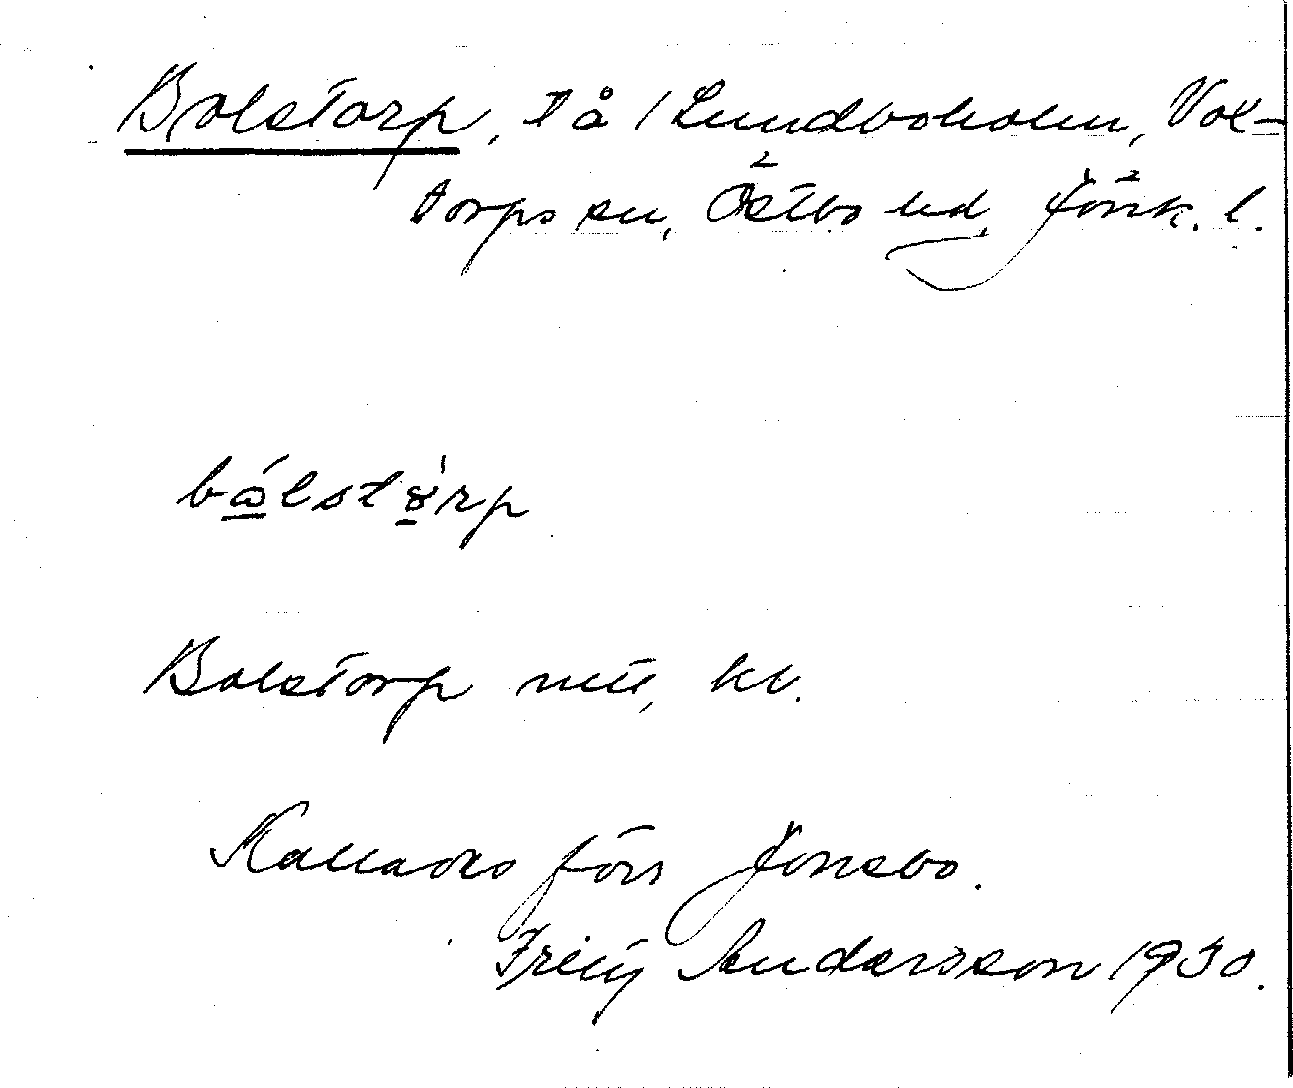 Bolstorp, t å / Lundboholm, Vol-
torps sn, Östbo hd, Jönk. l.
bålstårp
Bolstorp nitt, kv.
Kallades förr Jonsbo.
Andersson 1930.